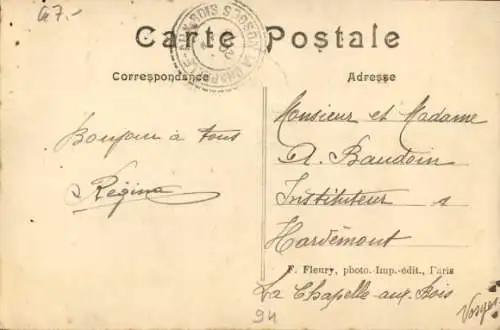 47.-
Carte Postale
Correspondance
Adresse
Bonjour à tous
Régina
Monsieur et Madame
A. Baudoin
Instituteur s
Hardémont
F. Fleury, photo.-Imp.-édit., Paris
La Chapelle-aux-Bois
Vosges
94